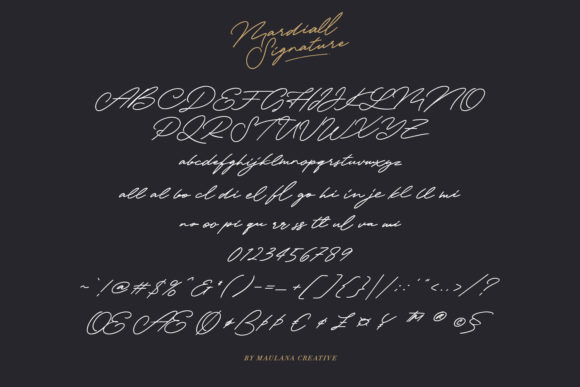 Nardiall
Signature
ABCDEFGHIJKLMNO
PQRSTUVWXYZ
abcdefghijklmnopqrstuvwxyz
all al bo cl di el fl go hi in je kl ll mi
no oo pi qu rr ss tt ul va wi
0123456789
~`!@#$%^&*()-=_+[]{}|/:;'"<,.>/?
BY MAULANA CREATIVE